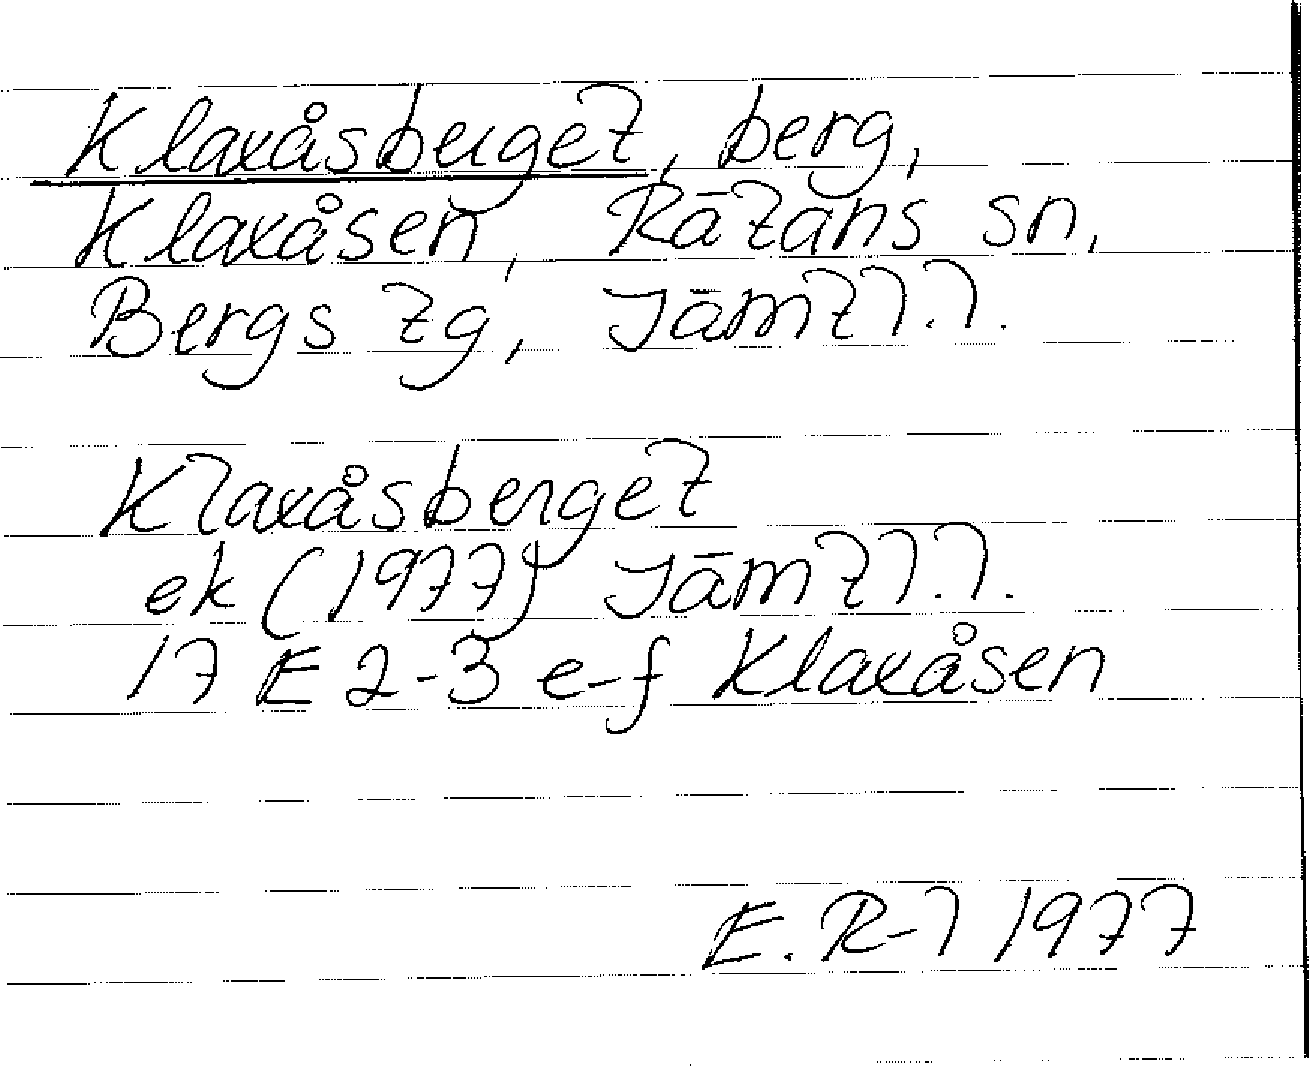 Klaxåsberget, berg,
Klaxåsen, Rätans sn,
Bergs tg, Jämtl.l.
Klaxåsberget
ek (1977) Jämtl.l.
17 E 2-3 e-f Klaxåsen
E. R-l 1977